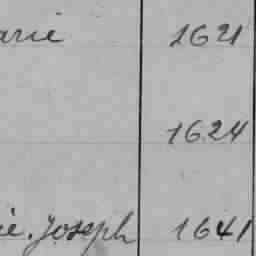 arie 1621
1624
ie. Joseph 1641